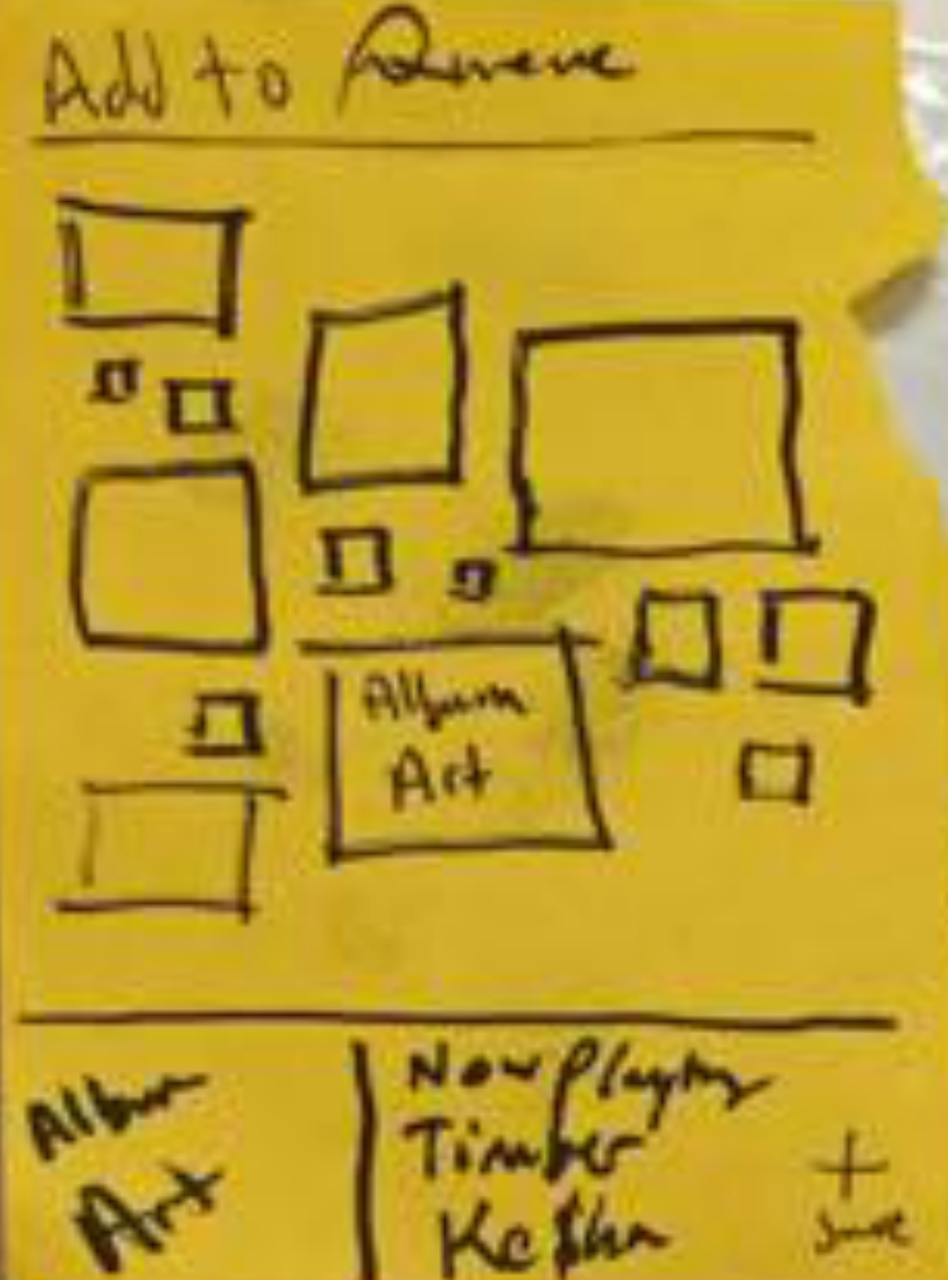 Add to Queue
Album
Art
Album
Art
Now Playing
Timber
Ke$ha
+